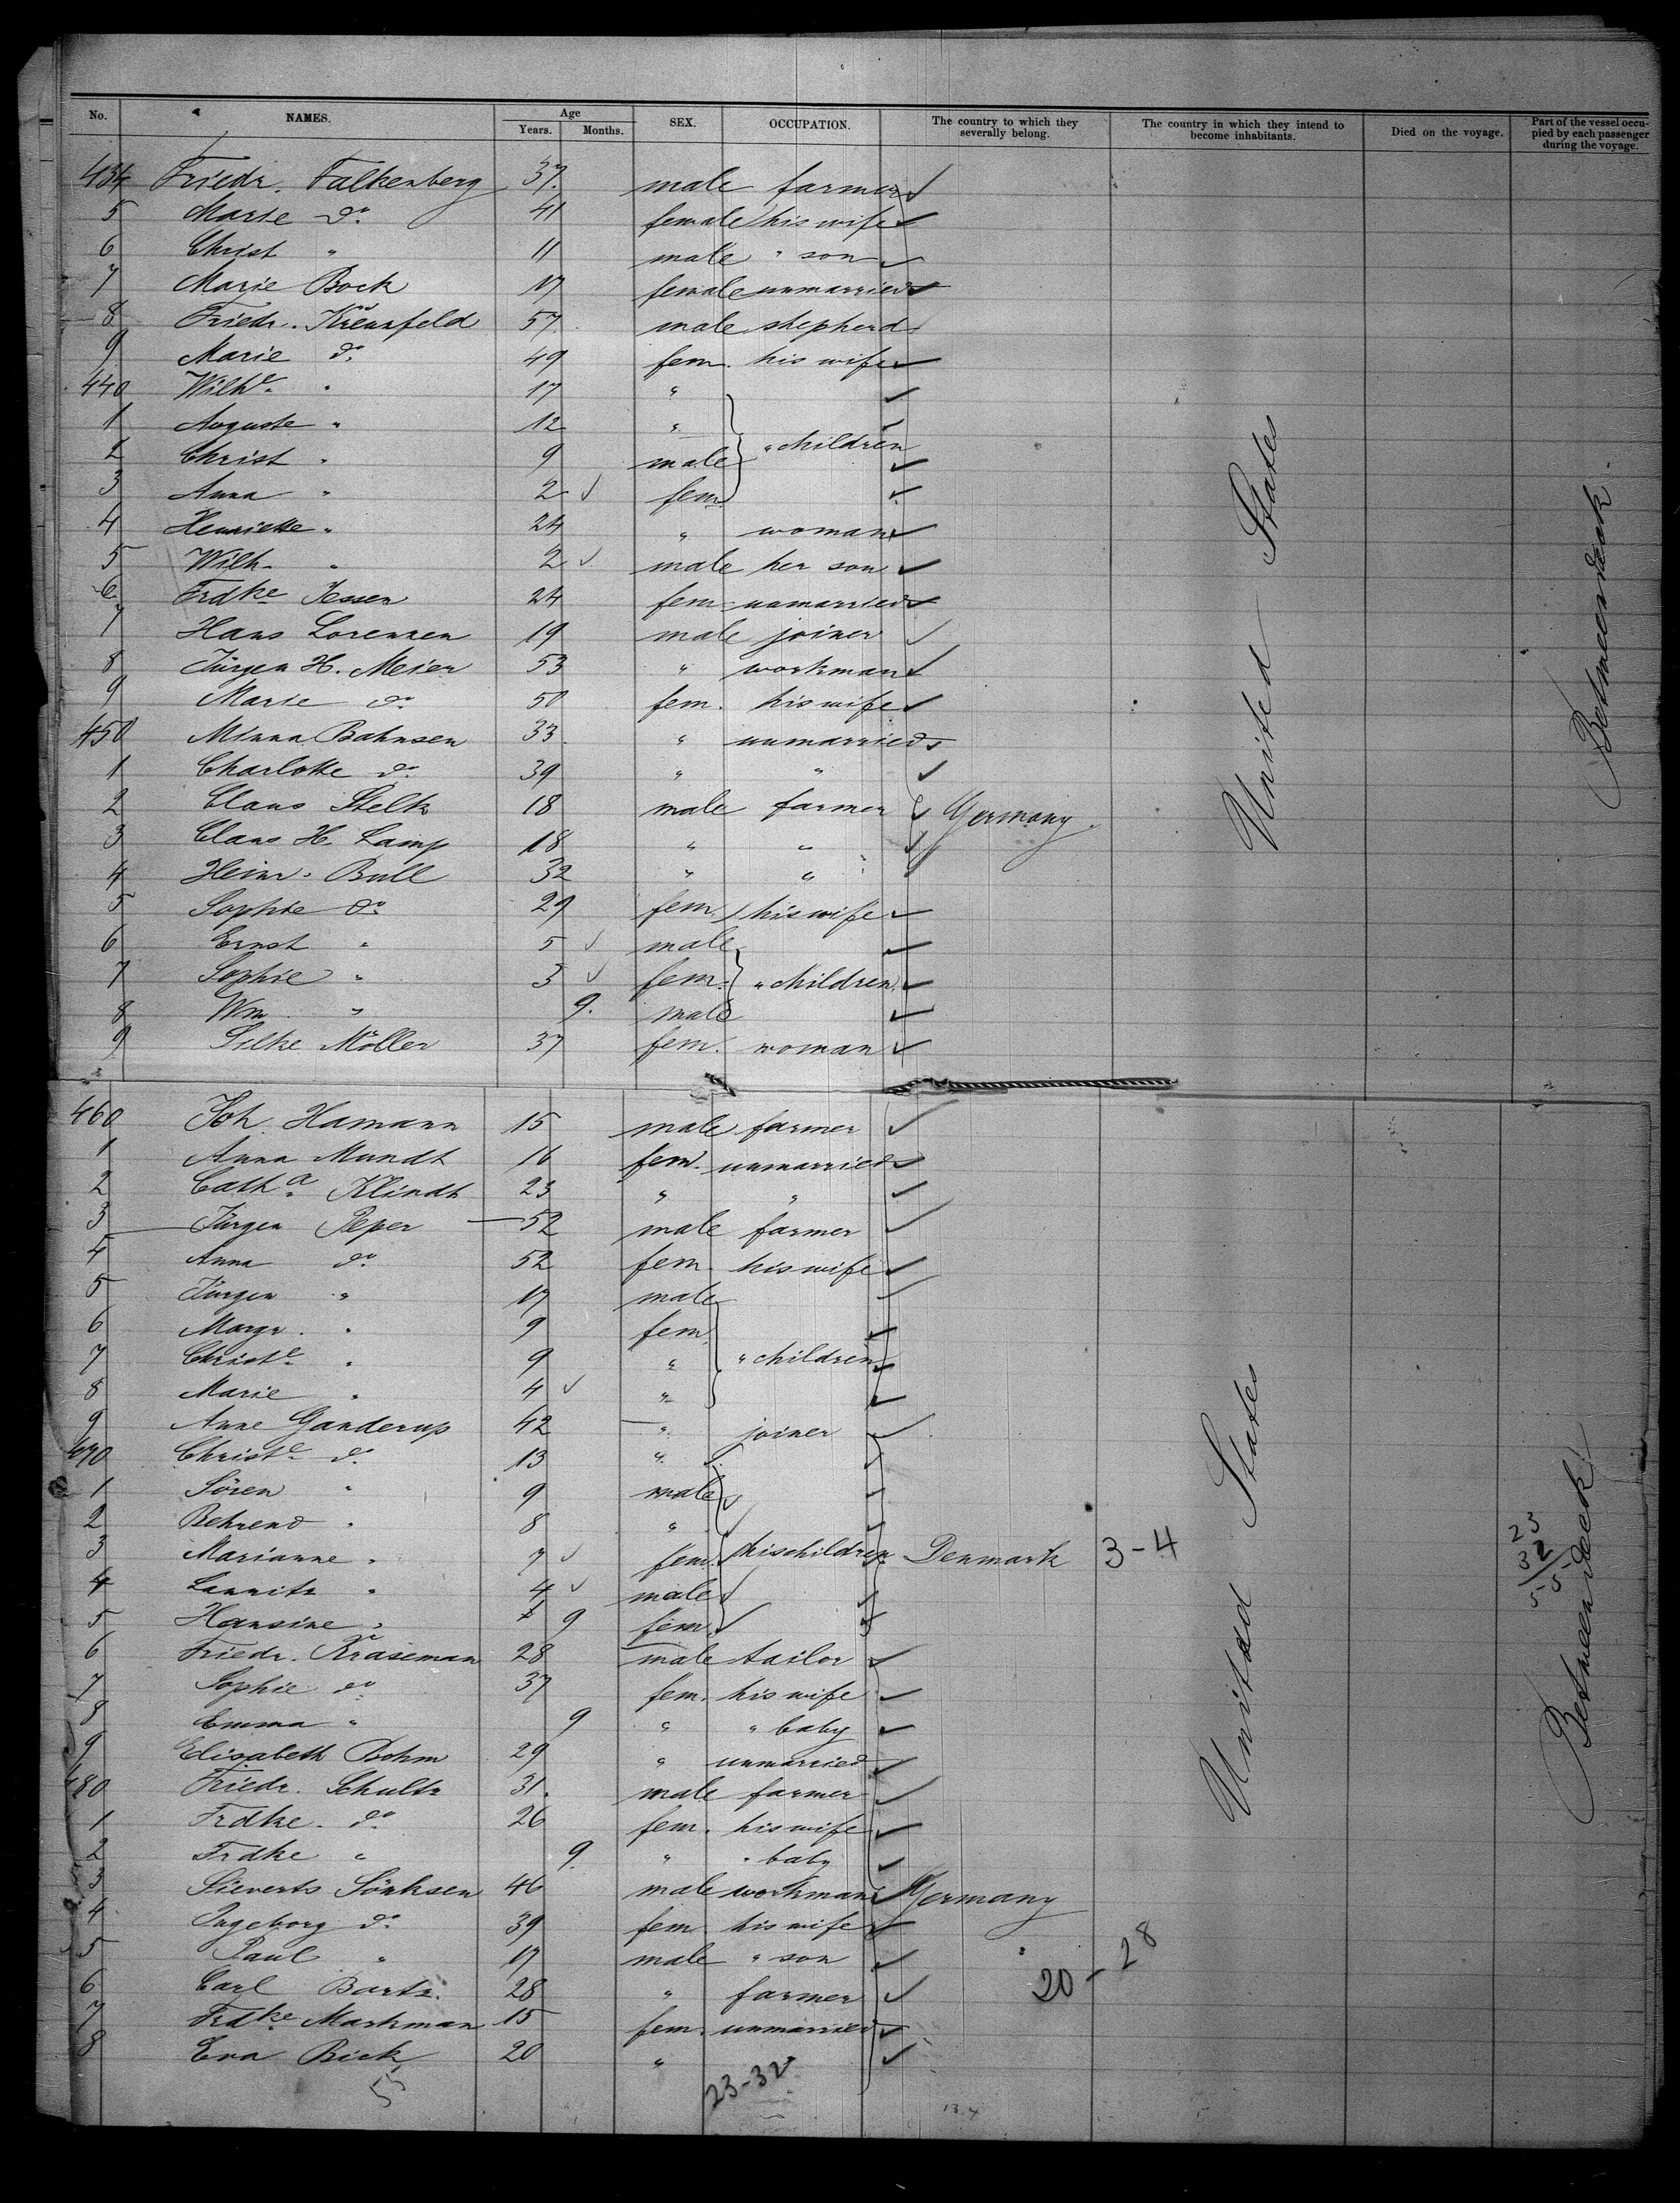 No. NAMES. Age Years. Months. SEX. OCCUPATION. The country to which they severally belong. The country in which they intend to become inhabitants. Died on the voyage. Part of the vessel occupied by each passenger during the voyage.
434 Friedr. Falkenberg 37. male farmer
5 Marie do 41 female his wife
6 Christ " 11 male " son
7 Marie Bock 17 female unmarried
8 Friedr. 57 male shepherd
9 Marie do 49 fem. his wife
440 Wilhe " 17 "
1 Auguste " 12 "
2 Christ " 9 male " children
3 Anna " 2 fem.
4 Henriette " 24 " woman
5 Wilh. " 2 male her son
6 Frdke Jessen 24 fem. unmarried
7 Hans Lorenzen 19 male joiner
8 Jürgen H. Meier 53 " workman
9 Marie do 50 fem. his wife
450 Minna Bahnsen 33 " unmarried
1 Charlotte do 39 " "
2 Claus Stelk 18 male farmer Germany
3 Claus H. Lamp 18 " "
4 Heinr. Bull 32 " "
5 Sophie do 29 fem. his wife
6 Ernst " 5 male
7 Sophie " 3 fem. " children
8 Wm " 9. male
9 Silke Möller 37 fem. woman
United States
Betweendeck
460 Joh. Hamann 15 male farmer
1 Anna Mundt 16 fem. unmarried
2 Catha Klindt 23 " "
3 Jürgen Peper 52 male farmer
4 Anna do 52 fem. his wife
5 Jürgen " 17 male
6 Margr. " 9 fem.
7 Christe " 9 " " children
8 Marie " 4 "
9 Anne Ganderup 42 " joiner
470 Christe do 13 "
1 Sören " 9 male
2 Behrend " 8 "
3 Marianne " 7 fem. his children Denmark 3-4
4 " 4 male
5 Hansine " 9 fem.
6 Friedr. Kräseman 28 male tailor
7 Sophie do 37 fem. his wife
8 Emma " 9 " " baby
9 Elisabeth Bohm 29 " unmarried
480 Friedr. Schultz 31. male farmer
1 Frdke. do 26 fem. his wife
2 Frdke " 9. " " baby
3 Sieverts Sönksen 46 male workman Germany
4 Ingeborg do 39 fem. his wife
5 Paul " 17 male " son
6 Carl Bartz. 28 " farmer
7 Frdke Markman 15 fem. unmarried
8 Eva Bick 20 "
United States
Betweendeck
23
32
55
20-28
55
23-32
13.4